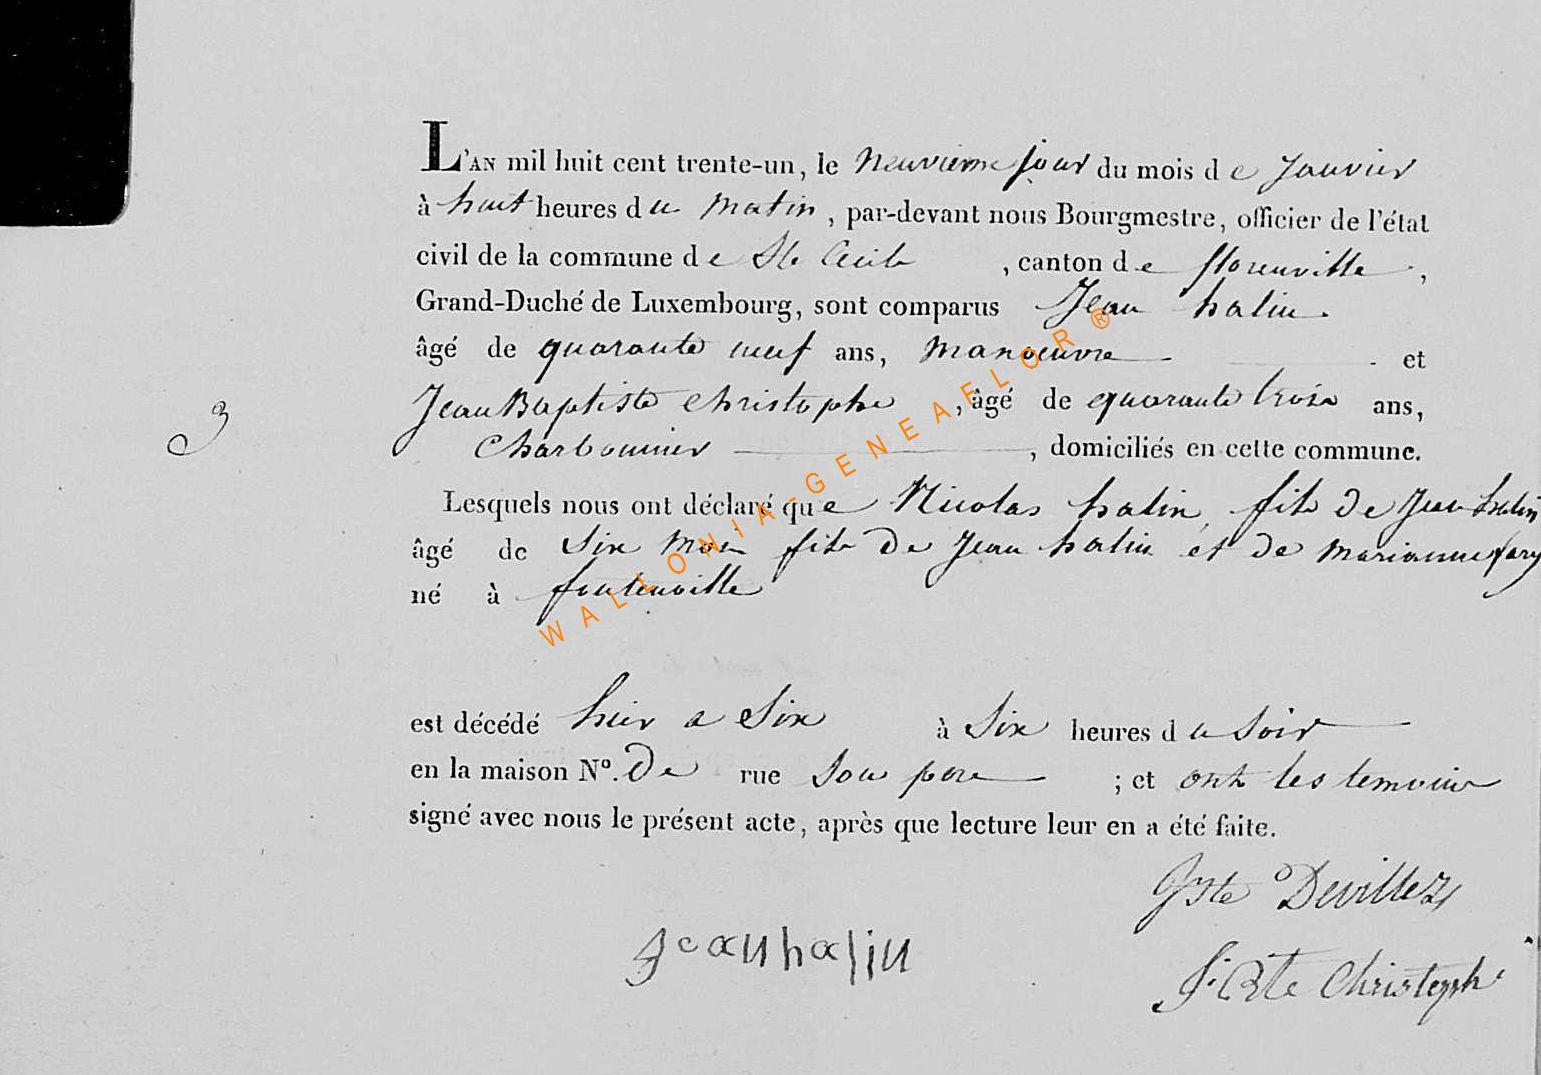 L'AN mil huit cent trente-un, le neuvieme jour du mois de Janvier
à huit heures du matin, par-devant nous Bourgmestre, officier de l'état
civil de la commune de Ste Cecile, canton de florenville,
Grand-Duché de Luxembourg, sont comparus Jean halin.
âgé de quarante neuf ans, manoeuvre et
3
Jean Baptiste Christophe, âgé de quarante trois ans,
Charbonnier, domiciliés en cette commune.
Lesquels nous ont déclaré que Nicolas halin, fils de Jean halin
âgé de six mois fils de Jean halin et de marianne
né à fontenoille
est décédé hier a six à six heures du soir
en la maison N°. de rue son pere ; et ont les temoins
signé avec nous le présent acte, après que lecture leur en a été faite.
Devillez
Jean halin
J. Bte Christophe
WALLONIA-GENEAFLOR®